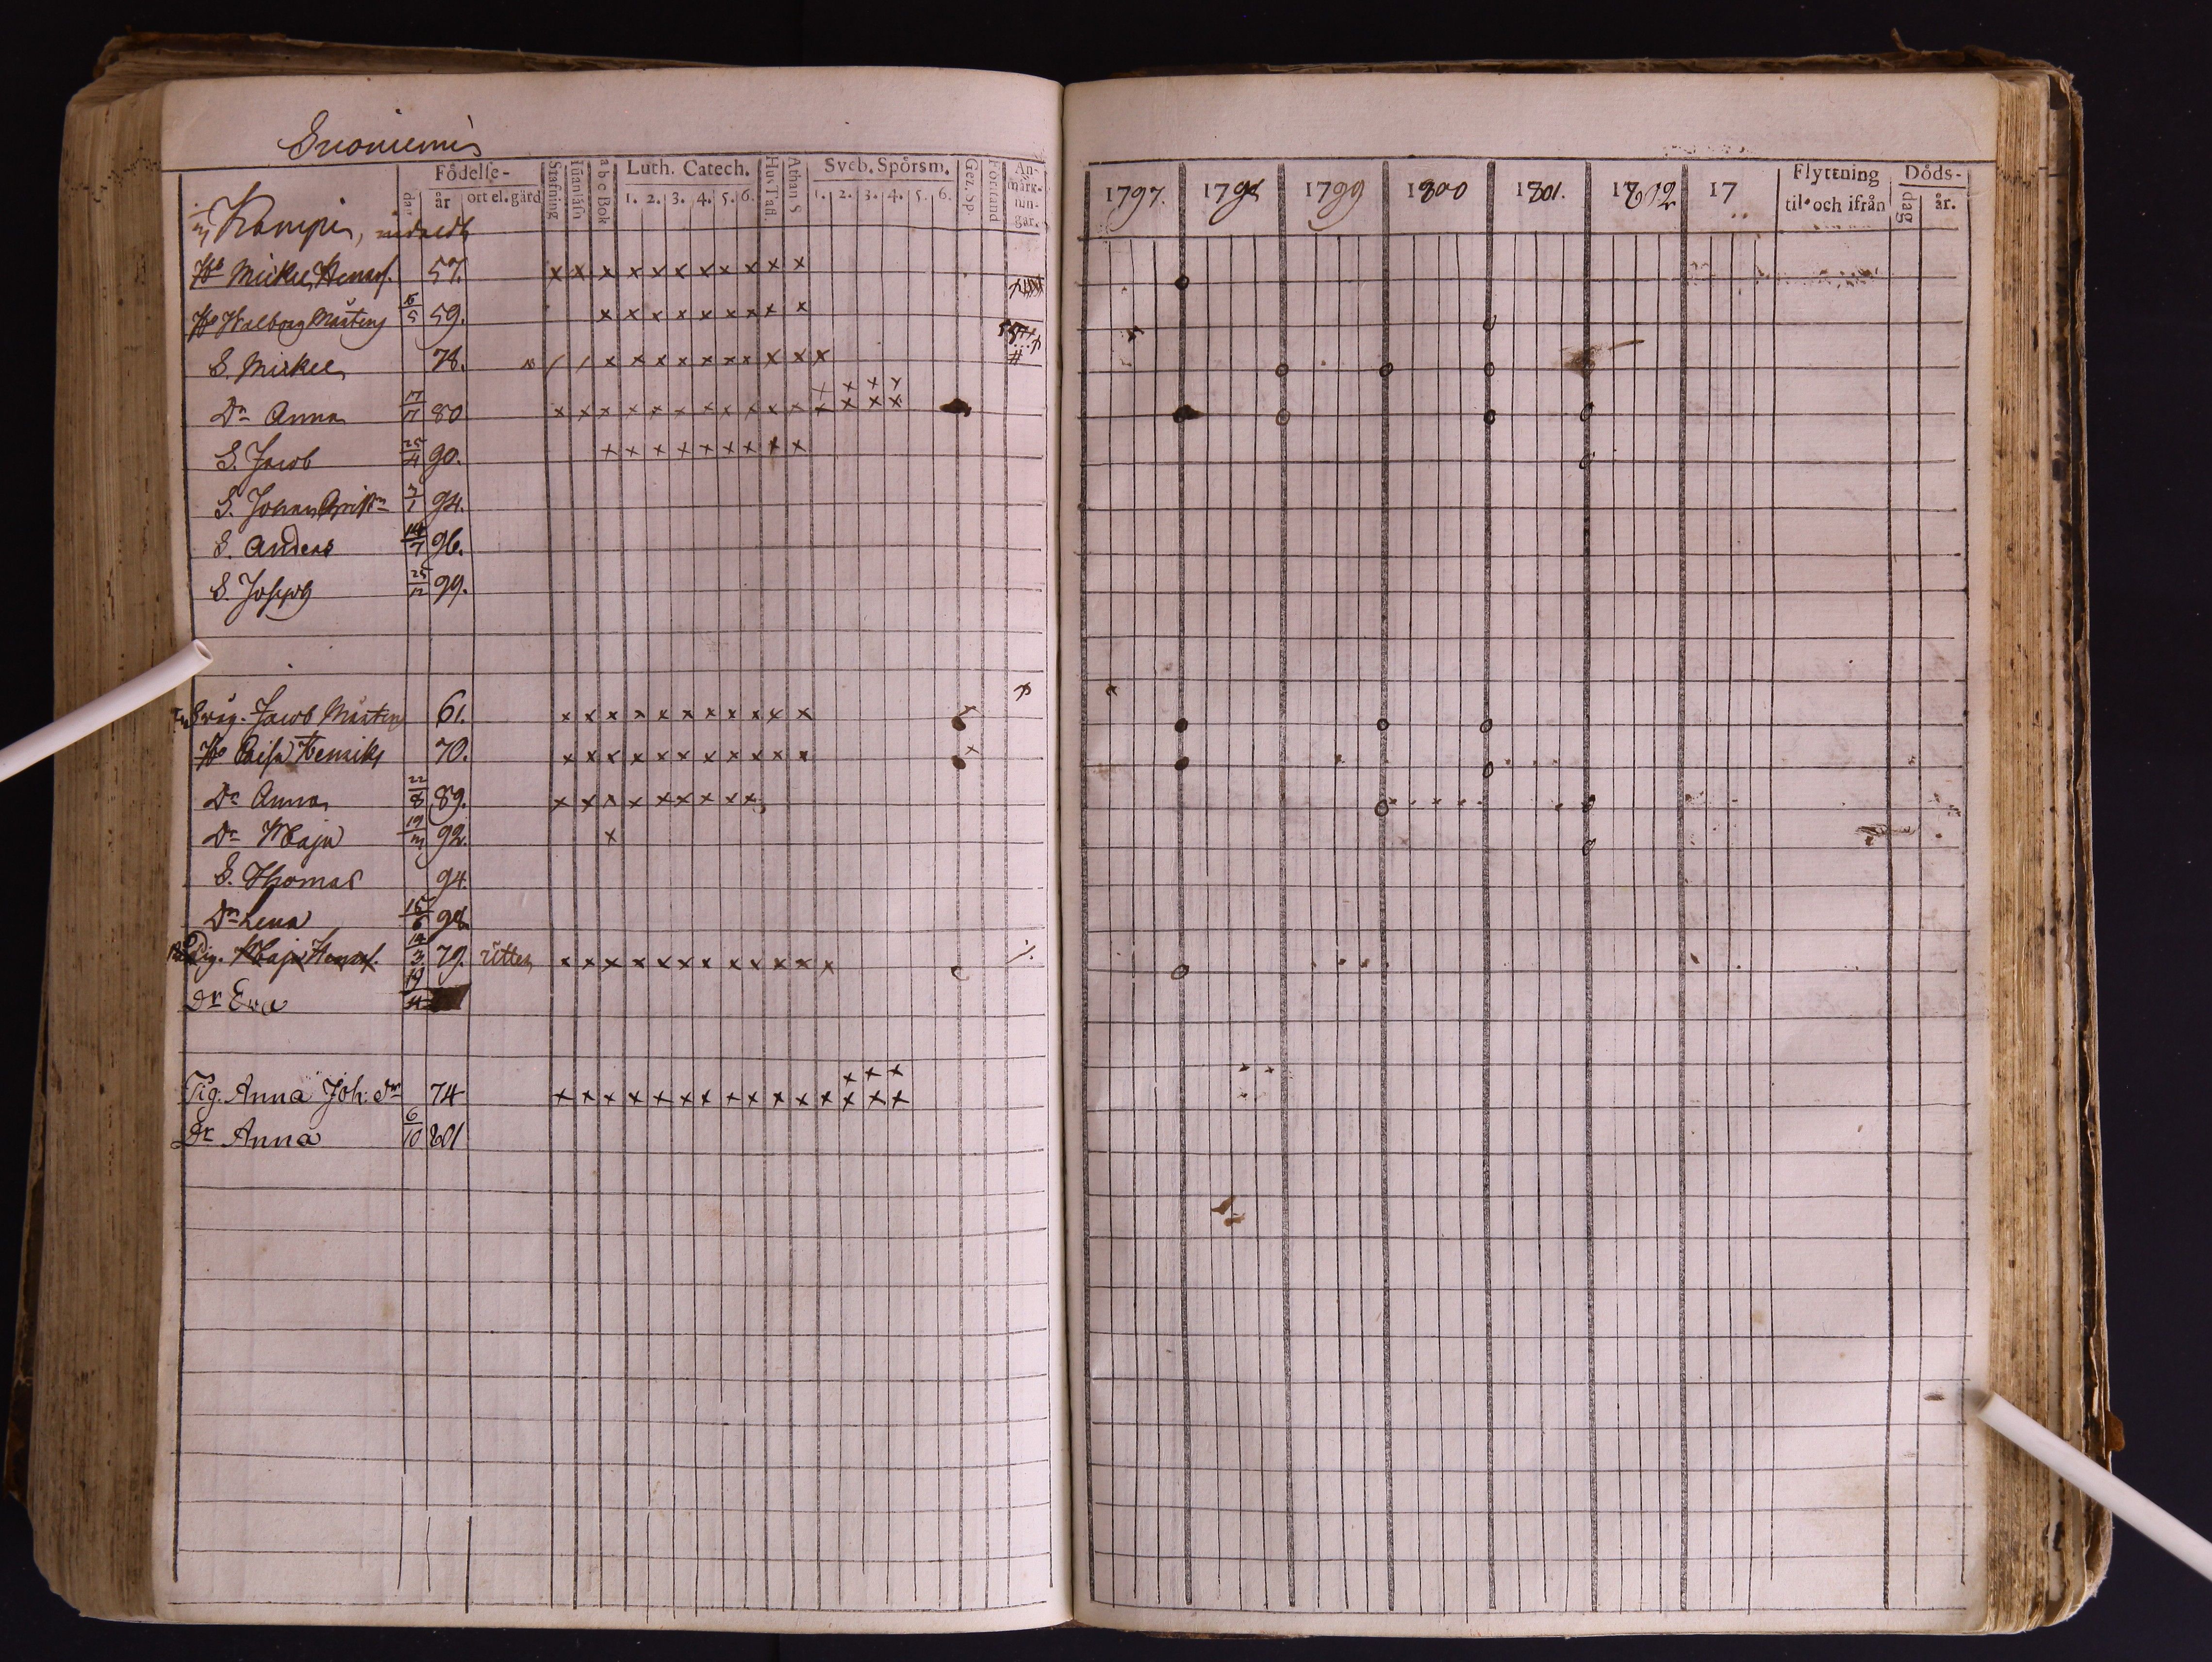 Suoniemi
Födelse-
dag
år
ort el. gård
Stafning
Innanläsn
a b c Bok
Luth. Catech.
1. 2. 3. 4. 5. 6.
Hus Tafl.
Athan S
Sveb. Spörsm.
1. 2. 3. 4. 5. 6.
Gez. Sp
Förstånd
An-
märk-
nin-
gar.
Kampi,
Mickel Henrs. 57. x x x x x x x x x x x
Walborg Mårtens 59. x x x x x x x x x
S. Mickel 78. / / x x x x x x x x x x #
x x x x
Dr Anna 17/7 80 x x x x x x x x x x x x x x x
S. Jacob 25/4 90. x x x x x x x x x
S. Johan 94.
S. Anders 14/7 96.
S. Joseph 25/12 99.
Jacob Mårtens 61. x x x x x x x x x x x
Caisa Henriks 70. x x x x x x x x x x x
Dr Anna 22/8 89. x x x x x x x x x
Dr Maja 19/m 92. x
S. Thomas 94.
Dr Lena 15/6 98
Pig. Maja Henrs. 14/3 79. x x x x x x x x x x x x
Dr Eva 19/4
x x x
Pig. Anna Joh: dr 74 x x x x x x x x x x x x x x x
Dr Anna 6/10 801
1797. 1798 1799 1800 1801. 1802 17
Flyttning
til och ifrån
Döds-
dag
år.